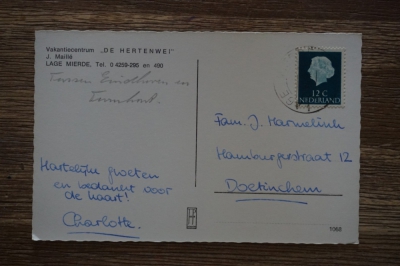 Vakantiecentrum „DE HERTENWEI"
J. Maillé
LAGE MIERDE, Tel. 0 4259-295 en 490
Tussen Eindhoven en
Turnhout.
Hartelijke groeten
en bedankt voor
de kaart!
Charlotte.
12 C
NEDERLAND
Fam. J. Harmelink
Hamburgerstraat 12
Doetinchem
1068